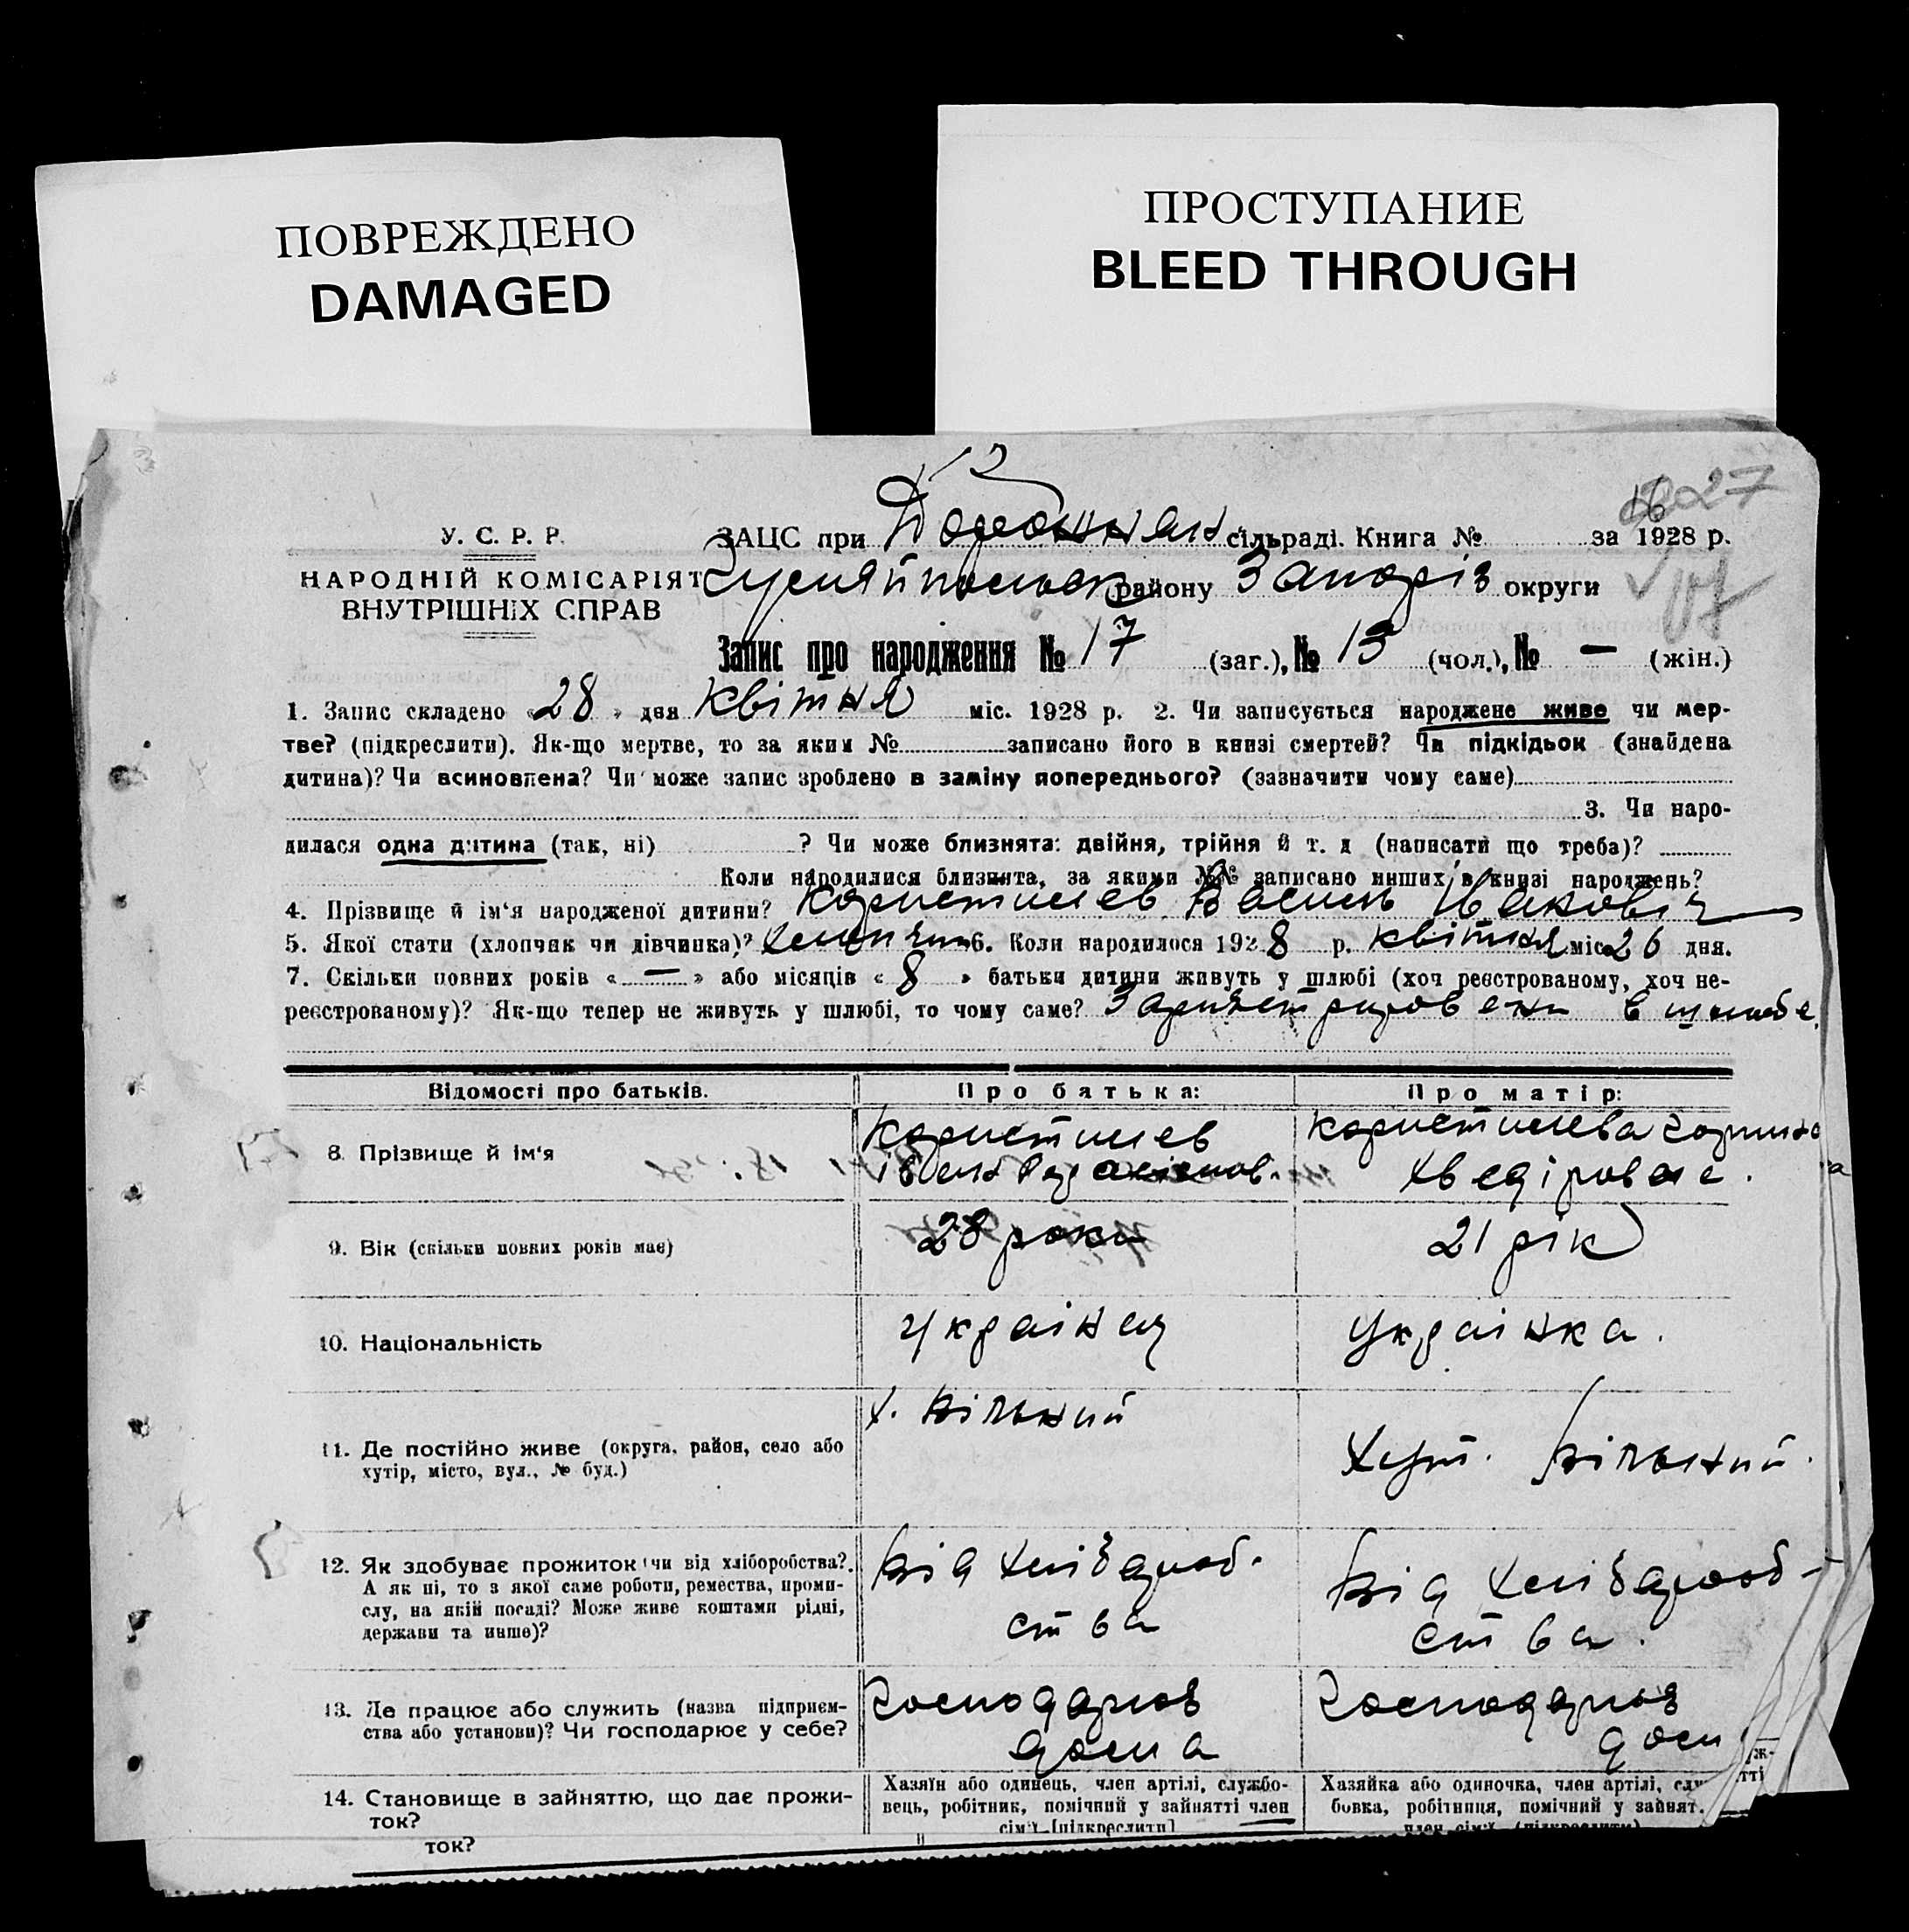 ПОВРЕЖДЕНО
DAMAGED
ПРОСТУПАНИЕ
BLEED THROUGH
У. С. Р. Р.
НАРОДНІЙ КОМІСАРІЯТ
ВНУТРІШНІХ СПРАВ
ЗАЦС при сільраді. Книга № за 1928 р.
району Запоріз округи
Запис про народження № 17 (заг.), № 13 (чол.), № — (жін.)
1. Запис складено «28» дня квітня міс. 1928 р. 2. Чи записується народжене живе чи мер-
тве? (підкреслити). Як-що мертве, то за яким № записано його в книзі смертей? Чи підкідьок (знайдена
дитина)? Чи всиновлена? Чи може запис зроблено в заміну попереднього? (зазначити чому саме)
3. Чи наро-
дилася одна дитина (так, ні) ? Чи може близнята: двійня, трійня й т. д (написати що треба)?
Коли народилися близнята, за якими №№ записано инших в книзі народжень?
4. Прізвище й ім'я народженої дитини? Василь Іванович
5. Якої статі (хлопчик чи дівчинка)? 6. Коли народилося 1928 р. квітня міс. 26 дня.
7. Скільки повних років «—» або місяців «8» батьки дитини живуть у шлюбі (хоч реєстрованому, хоч не-
реєстрованому)? Як-що тепер не живуть у шлюбі, то чому саме? в шлюбе.
Відомості про батьків.
Про батька:
Про матір:
8. Прізвище й ім'я
9. Вік (скільки повних років має)
28 роки
21 рік
10. Національність
Українец
Українка.
11. Де постійно живе (округа, район, село або
хутір, місто, вул., № буд.)
х. Вільний
Хут. Вільний.
12. Як здобуває прожиток (чи від хліборобства?
А як ні, то з якої саме роботи, ремества, проми-
слу, на якій посаді? Може живе коштами рідні,
держави та инше)?
Від хлібароб-
ства
Від хлібароб-
ства.
13. Де працює або служить (назва підприєм-
ства або установи)? Чи господарює у себе?
дома
14. Становище в зайняттю, що дає прожи-
ток?
Хазяїн або одинець, член артілі, службо-
вець, робітник, помічний у зайнятті член
сім'ї [підкреслити]
Хазяйка або одиночка, член артілі,
бовка, робітниця, помічний у зайнят.
член сім'ї (підкреслити)
ток?